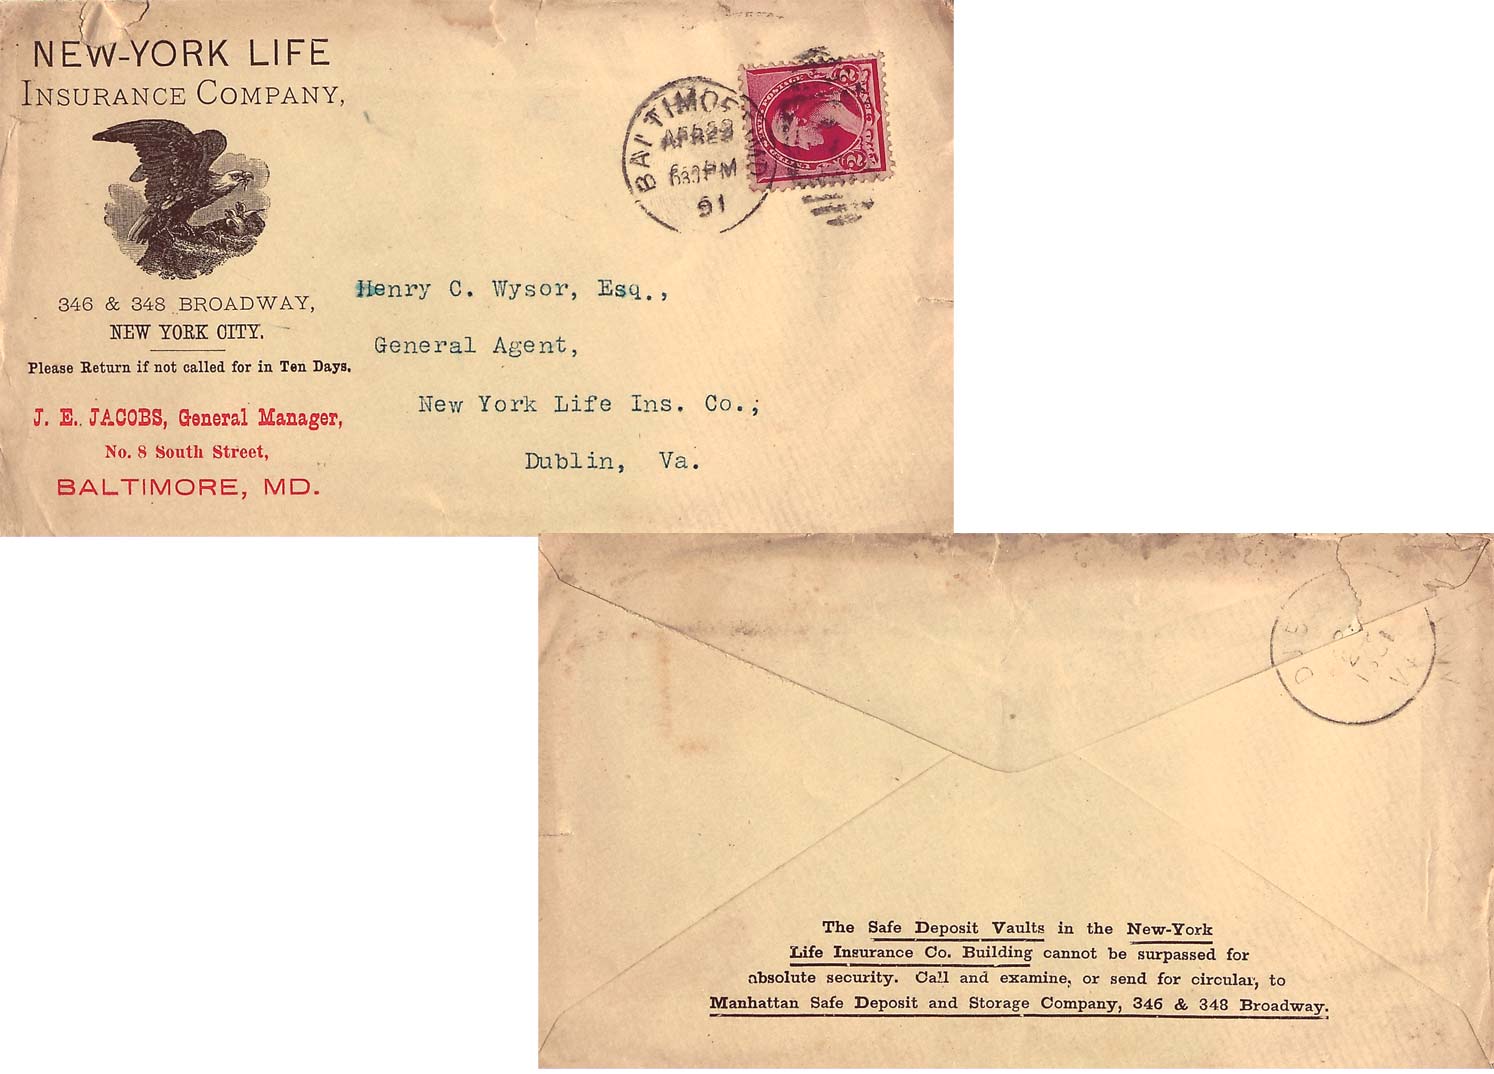 NEW-YORK LIFE
INSURANCE COMPANY,
346 & 348 BROADWAY,
NEW YORK CITY.
Please Return if not called for in Ten Days.
J. E. JACOBS, General Manager,
No. 8 South Street,
BALTIMORE, MD.
BALTIMORE
PM
91
2 2
Henry C. Wysor, Esq.,
General Agent,
New York Life Ins. Co.,
Dublin, Va.
The Safe Deposit Vaults in the New-York
Life Insurance Co. Building cannot be surpassed for
absolute security. Call and examine, or send for circular, to
Manhattan Safe Deposit and Storage Company, 346 & 348 Broadway.